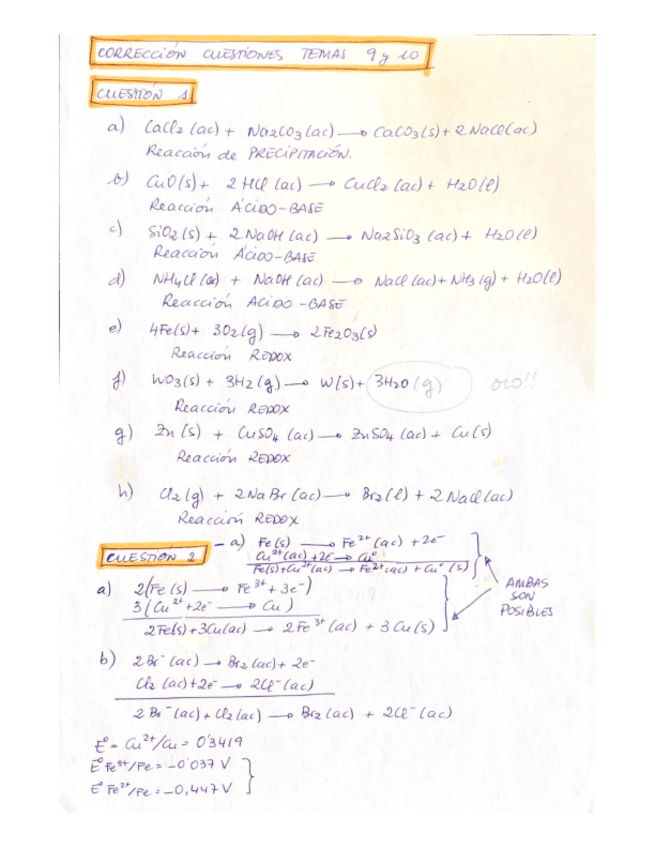 CORRECCIÓN CUESTIONES TEMAS 9 y 10
CUESTIÓN 1
a) CaCl2 (ac) + Na2CO3 (ac) → CaCO3(s) + 2 NaCl(ac)
Reacción de PRECIPITACIÓN.
b) CuO(s) + 2 HCl (ac) → CuCl2 (ac) + H2O(l)
Reacción ÁCIDO-BASE
c) SiO2(s) + 2 NaOH (ac) → Na2SiO3 (ac) + H2O(l)
Reacción ÁCIDO-BASE
d) NH4Cl (ac) + NaOH (ac) → NaCl(ac) + NH3(g) + H2O(l)
Reacción ACIDO-BASE
e) 4Fe(s) + 3O2(g) → 2Fe2O3(s)
Reacción REDOX
f) WO3(s) + 3H2(g) → W(s) + 3H2O (g) OJO!!
Reacción REDOX
g) Zn(s) + CuSO4 (ac) → ZnSO4 (ac) + Cu(s)
Reacción REDOX
h) Cl2(g) + 2NaBr(ac) → Br2(l) + 2NaCl(ac)
Reacción REDOX
CUESTIÓN 2
– a) Fe(s) → Fe²⁺(ac) + 2e⁻
Cu²⁺(ac) + 2e⁻ → Cu⁰
Fe(s) + Cu²⁺(ac) → Fe²⁺(ac) + Cu⁰(s)
a) 2(Fe(s) → Fe³⁺ + 3e⁻)
3(Cu²⁺ + 2e⁻ → Cu)
2Fe(s) + 3Cu(ac) → 2Fe³⁺(ac) + 3Cu(s)
AMBAS
SON
POSIBLES
b) 2Br⁻(ac) → Br2(ac) + 2e⁻
Cl2(ac) + 2e⁻ → 2Cl⁻(ac)
2Br⁻(ac) + Cl2(ac) → Br2(ac) + 2Cl⁻(ac)
E⁰ = Cu²⁺/Cu = 0'3419
E⁰ Fe³⁺/Fe = -0'037 V
E⁰ Fe²⁺/Fe = -0,447 V